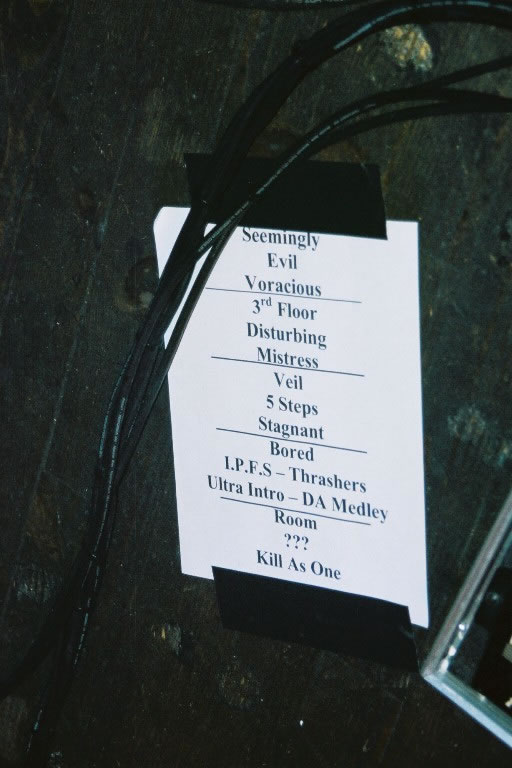 Seemingly
Evil
Voracious
3rd Floor
Disturbing
Mistress
Veil
5 Steps
Stagnant
Bored
I.P.F.S – Thrashers
Ultra Intro – DA Medley
Room
???
Kill As One